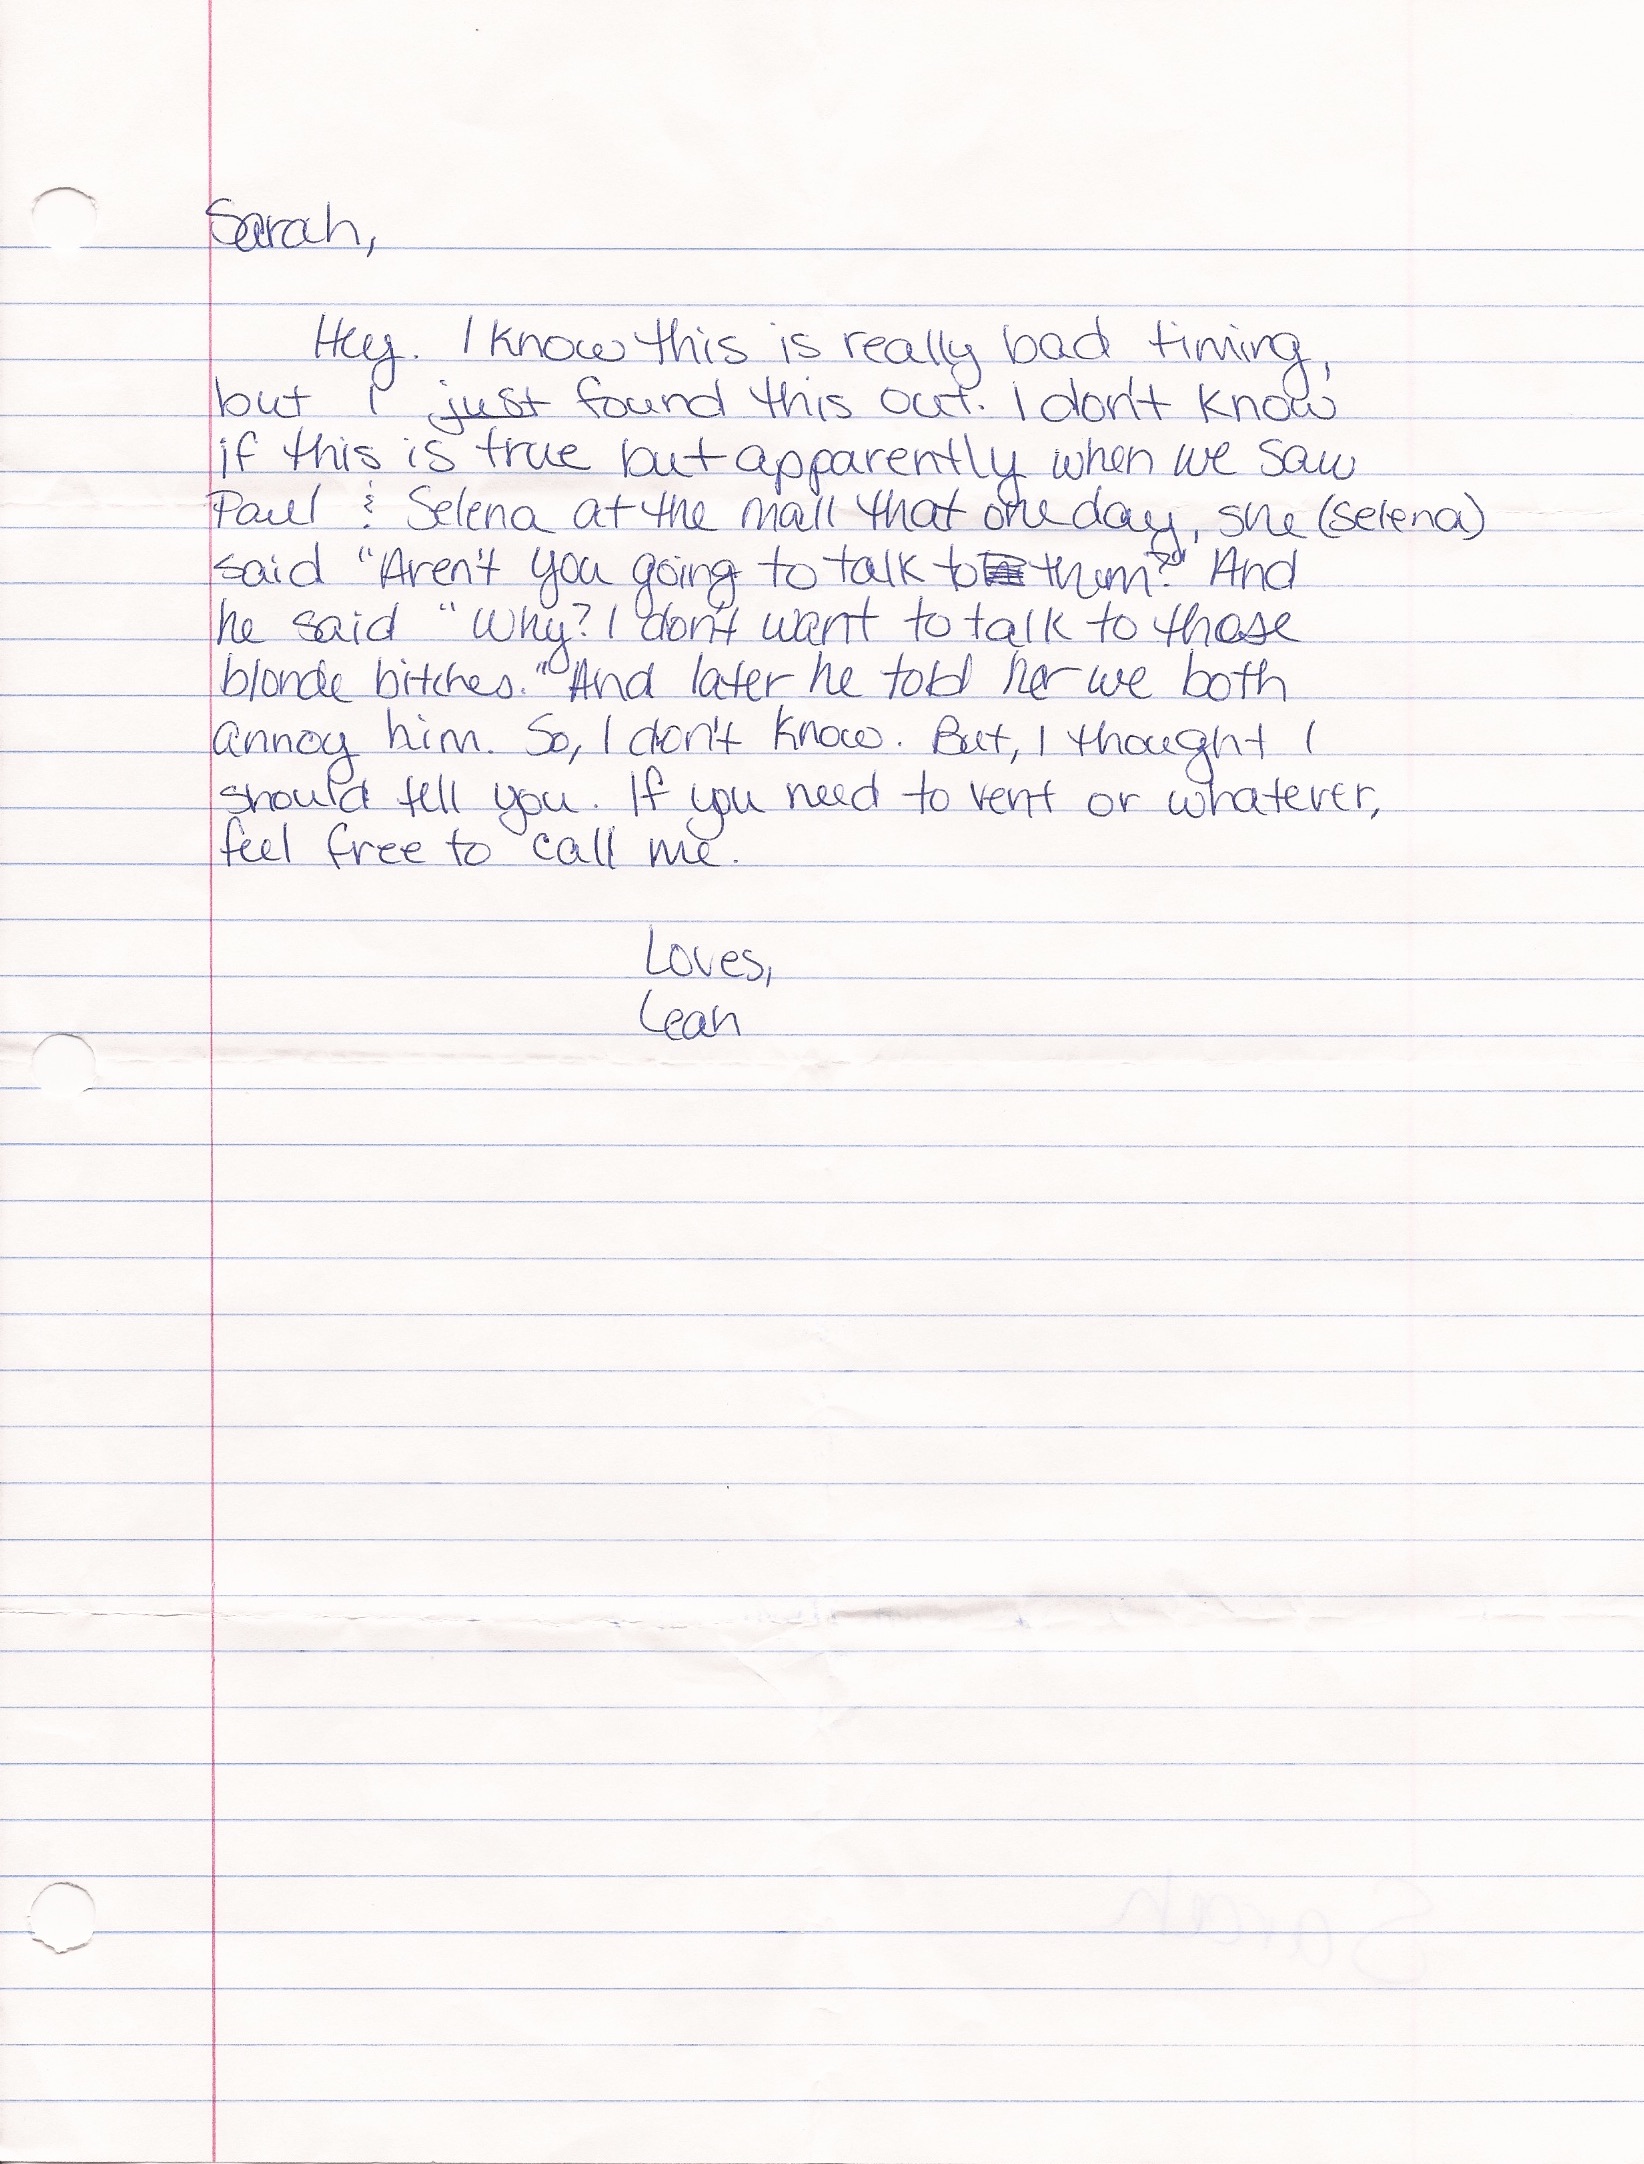 Sarah,
Hey. I know this is really bad timing,
but I just found this out. I don't know
if this is true but apparently when we saw
Paul & Selena at the mall that one day, she (Selena)
said "Aren't you going to talk to them?" And
he said "Why? I don't want to talk to those
blonde bitches." And later he told her we both
annoy him. So, I don't know. But, I thought I
should tell you. If you need to vent or whatever,
feel free to call me.
Loves,
Leah
Sarah